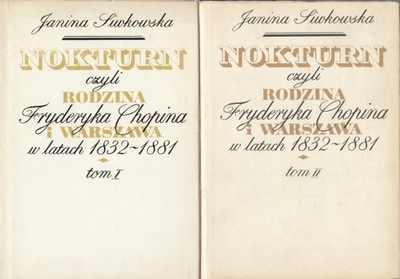 Janina Siwkowska
NOKTURN
czyli
RODZINA
Fryderyka Chopina
i WARSZAWA
w latach 1832~1881
tom I
Janina Siwkowska
NOKTURN
czyli
RODZINA
Fryderyka Chopina
i WARSZAWA
w latach 1832~1881
tom II